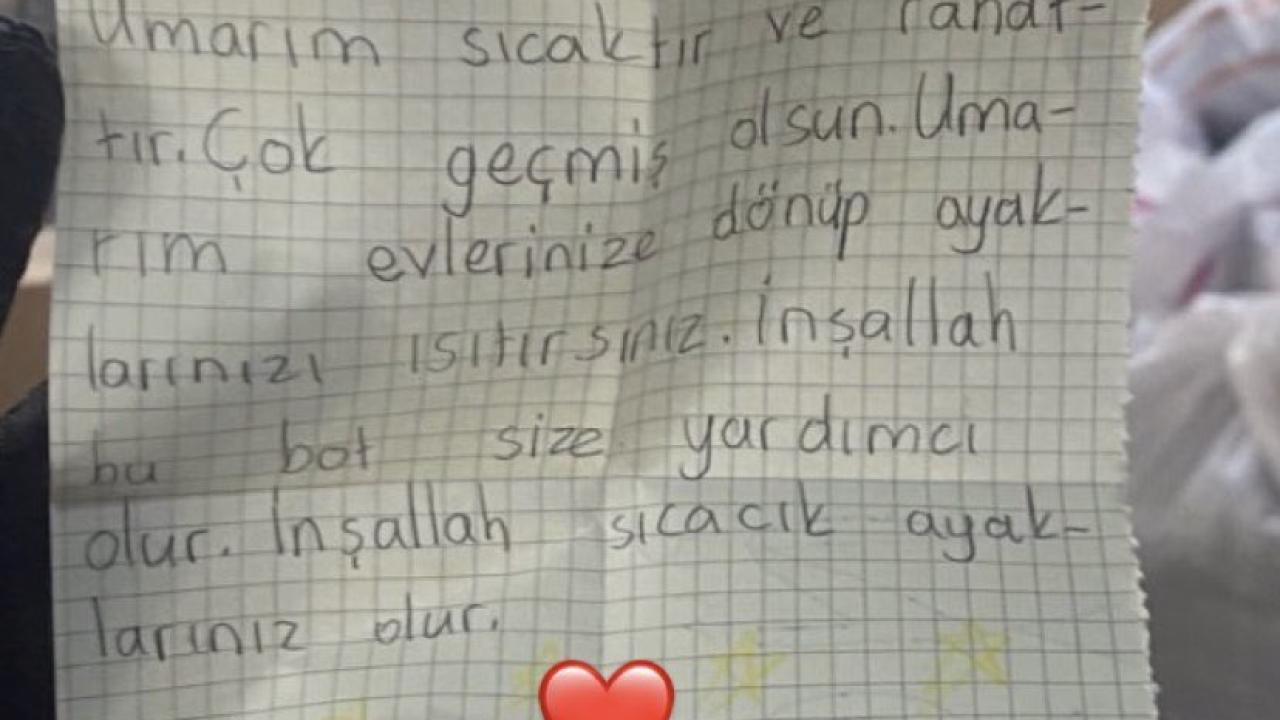 Umarım sıcaktır ve rahat-
tır. Çok geçmiş olsun. Uma-
rım evlerinize dönüp ayak-
larınızı ısıtırsınız. İnşallah
bu bot size yardımcı
olur. İnşallah sıcacık ayak-
larınız olur.